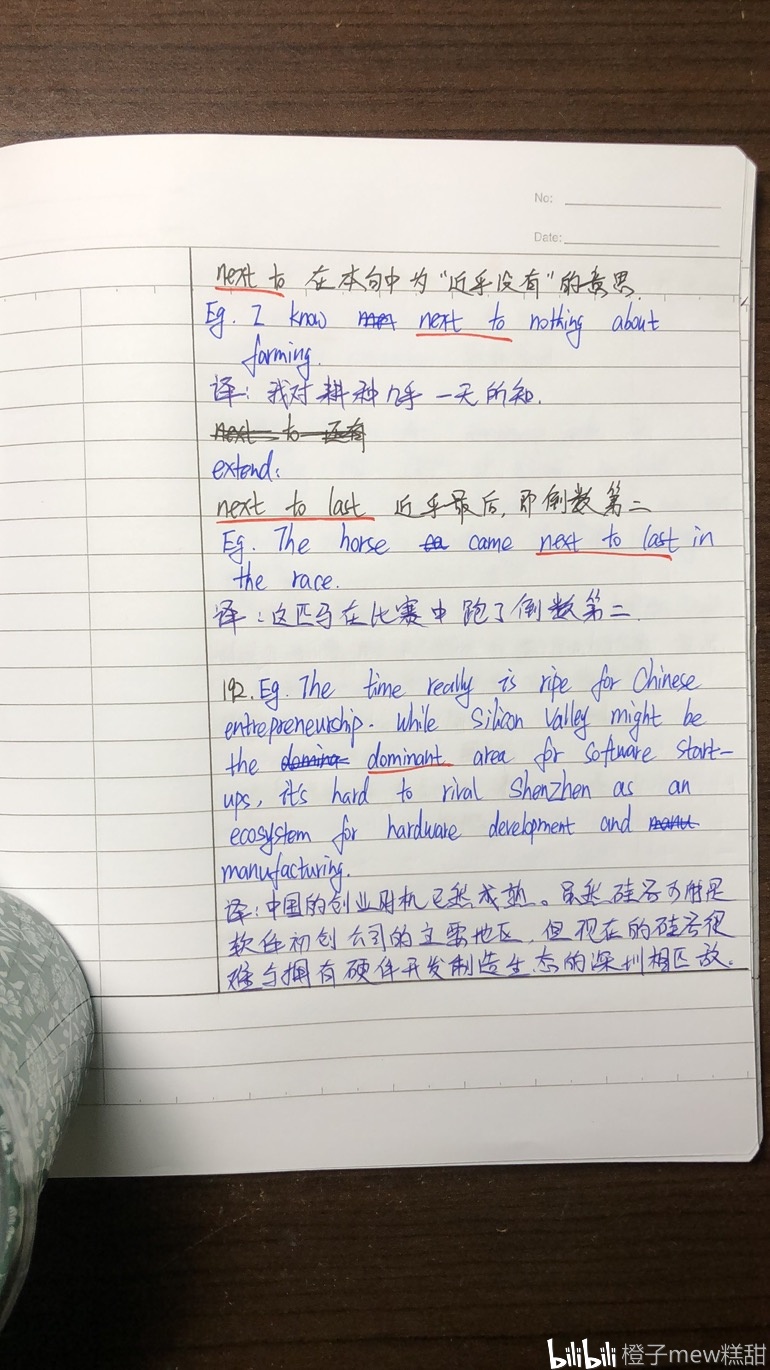 No:
Date:
next to 在本句中为“近乎没有”的意思.
Eg. I know next to nothing about
farming.
译: 我对耕种几乎一无所知.
next to 还有
extend:
next to last 近乎最后, 即倒数第二
Eg. The horse came next to last in
the race.
译: 这匹马在比赛中跑了倒数第二.
192. Eg. The time really is ripe for Chinese
entrepreneurship. While Silicon Valley might be
the dominant area for software start-
ups, it's hard to rival Shenzhen as an
ecosystem for hardware development and
manufacturing.
译: 中国的创业时机已然成熟。虽然硅谷可能是
软件初创公司的主要地区, 但现在的硅谷很
难与拥有硬件开发制造生态的深圳相匹敌.
bilibili 橙子mew糕甜